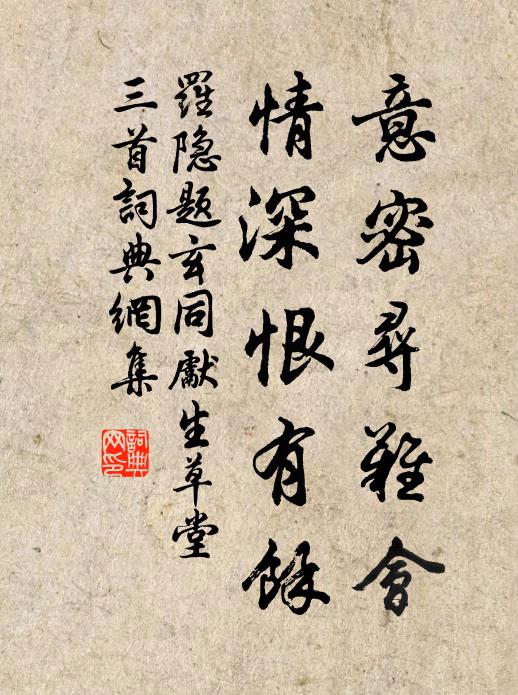 意密尋難會
情深恨有餘
羅隐题玄同獻生草堂
三首詞典網集
詞典網印